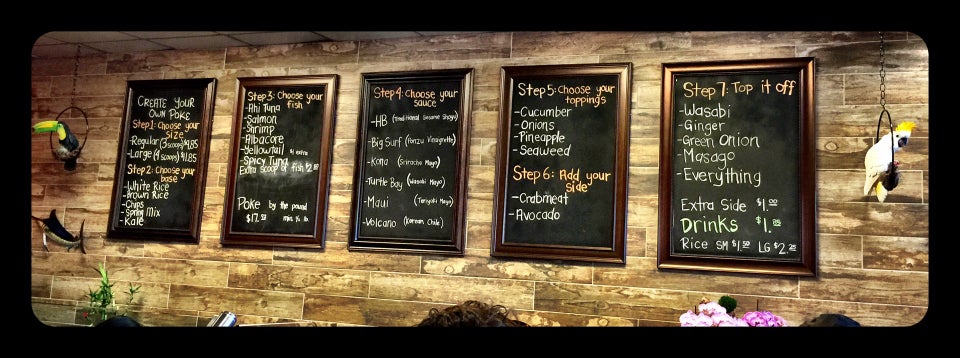 CREATE YOUR
OWN POKE
Step 1: Choose your
size
-Regular (3 scoops)
-Large (4 scoops) $11.85
Step 2: Choose your
base
-White Rice
-Brown Rice
-Chips
-Spring Mix
-Kale
Step 3: Choose your
fish
-Ahi Tuna
-Salmon
-Shrimp
-Albacore
-Yellowtail $1 extra
-Spicy Tuna
Extra scoop of fish
POKE by the pound
$17.50 min. ½ lb.
Step 4: Choose your
sauce
-HB (Traditional Sesame Shoyu)
-Big Surf (Ponzu Vinaigrette)
-Kona (Sriracha Mayo)
-Turtle Bay (Wasabi Mayo)
-Maui (Teriyaki Mayo)
-Volcano (Korean Chile)
Step 5: Choose your
toppings
-Cucumber
-Onions
-Pineapple
-Seaweed
Step 6: Add your
side
-Crabmeat
-Avocado
Step 7: Top it off
-Wasabi
-Ginger
-Green Onion
-Masago
-Everything
Extra Side $1.00
Drinks
Rice SM $1.50 LG